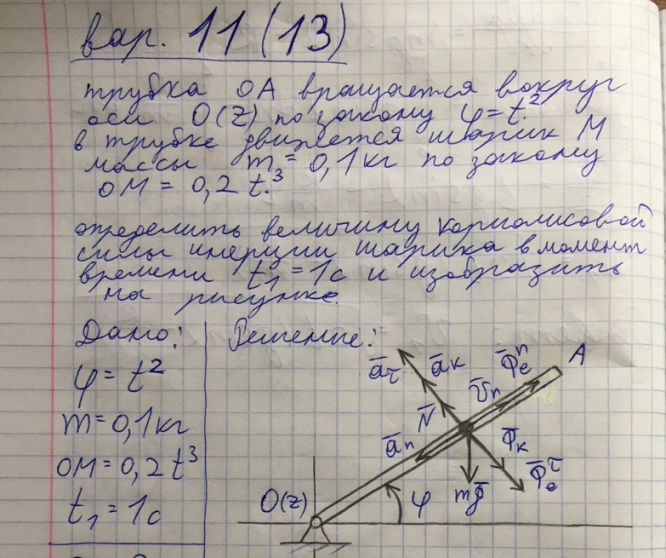 вар. 11 (13)
трубка OA вращается вокруг
оси O(Z) по закону φ = t²
в трубке движется шарик M
массы m = 0,1 кг по закону
OM = 0,2 t³
определить величину кориолисовой
силы инерции шарика в момент
времени t₁ = 1с и изобразить
на рисунке.
Дано: Решение:
φ = t²
m = 0,1 кг
OM = 0,2 t³
t₁ = 1с
a̅τ a̅к Φ̅eⁿ A
N̅ V̅п
a̅n Φ̅к
mg̅ Φ̅eτ
O(Z) φ